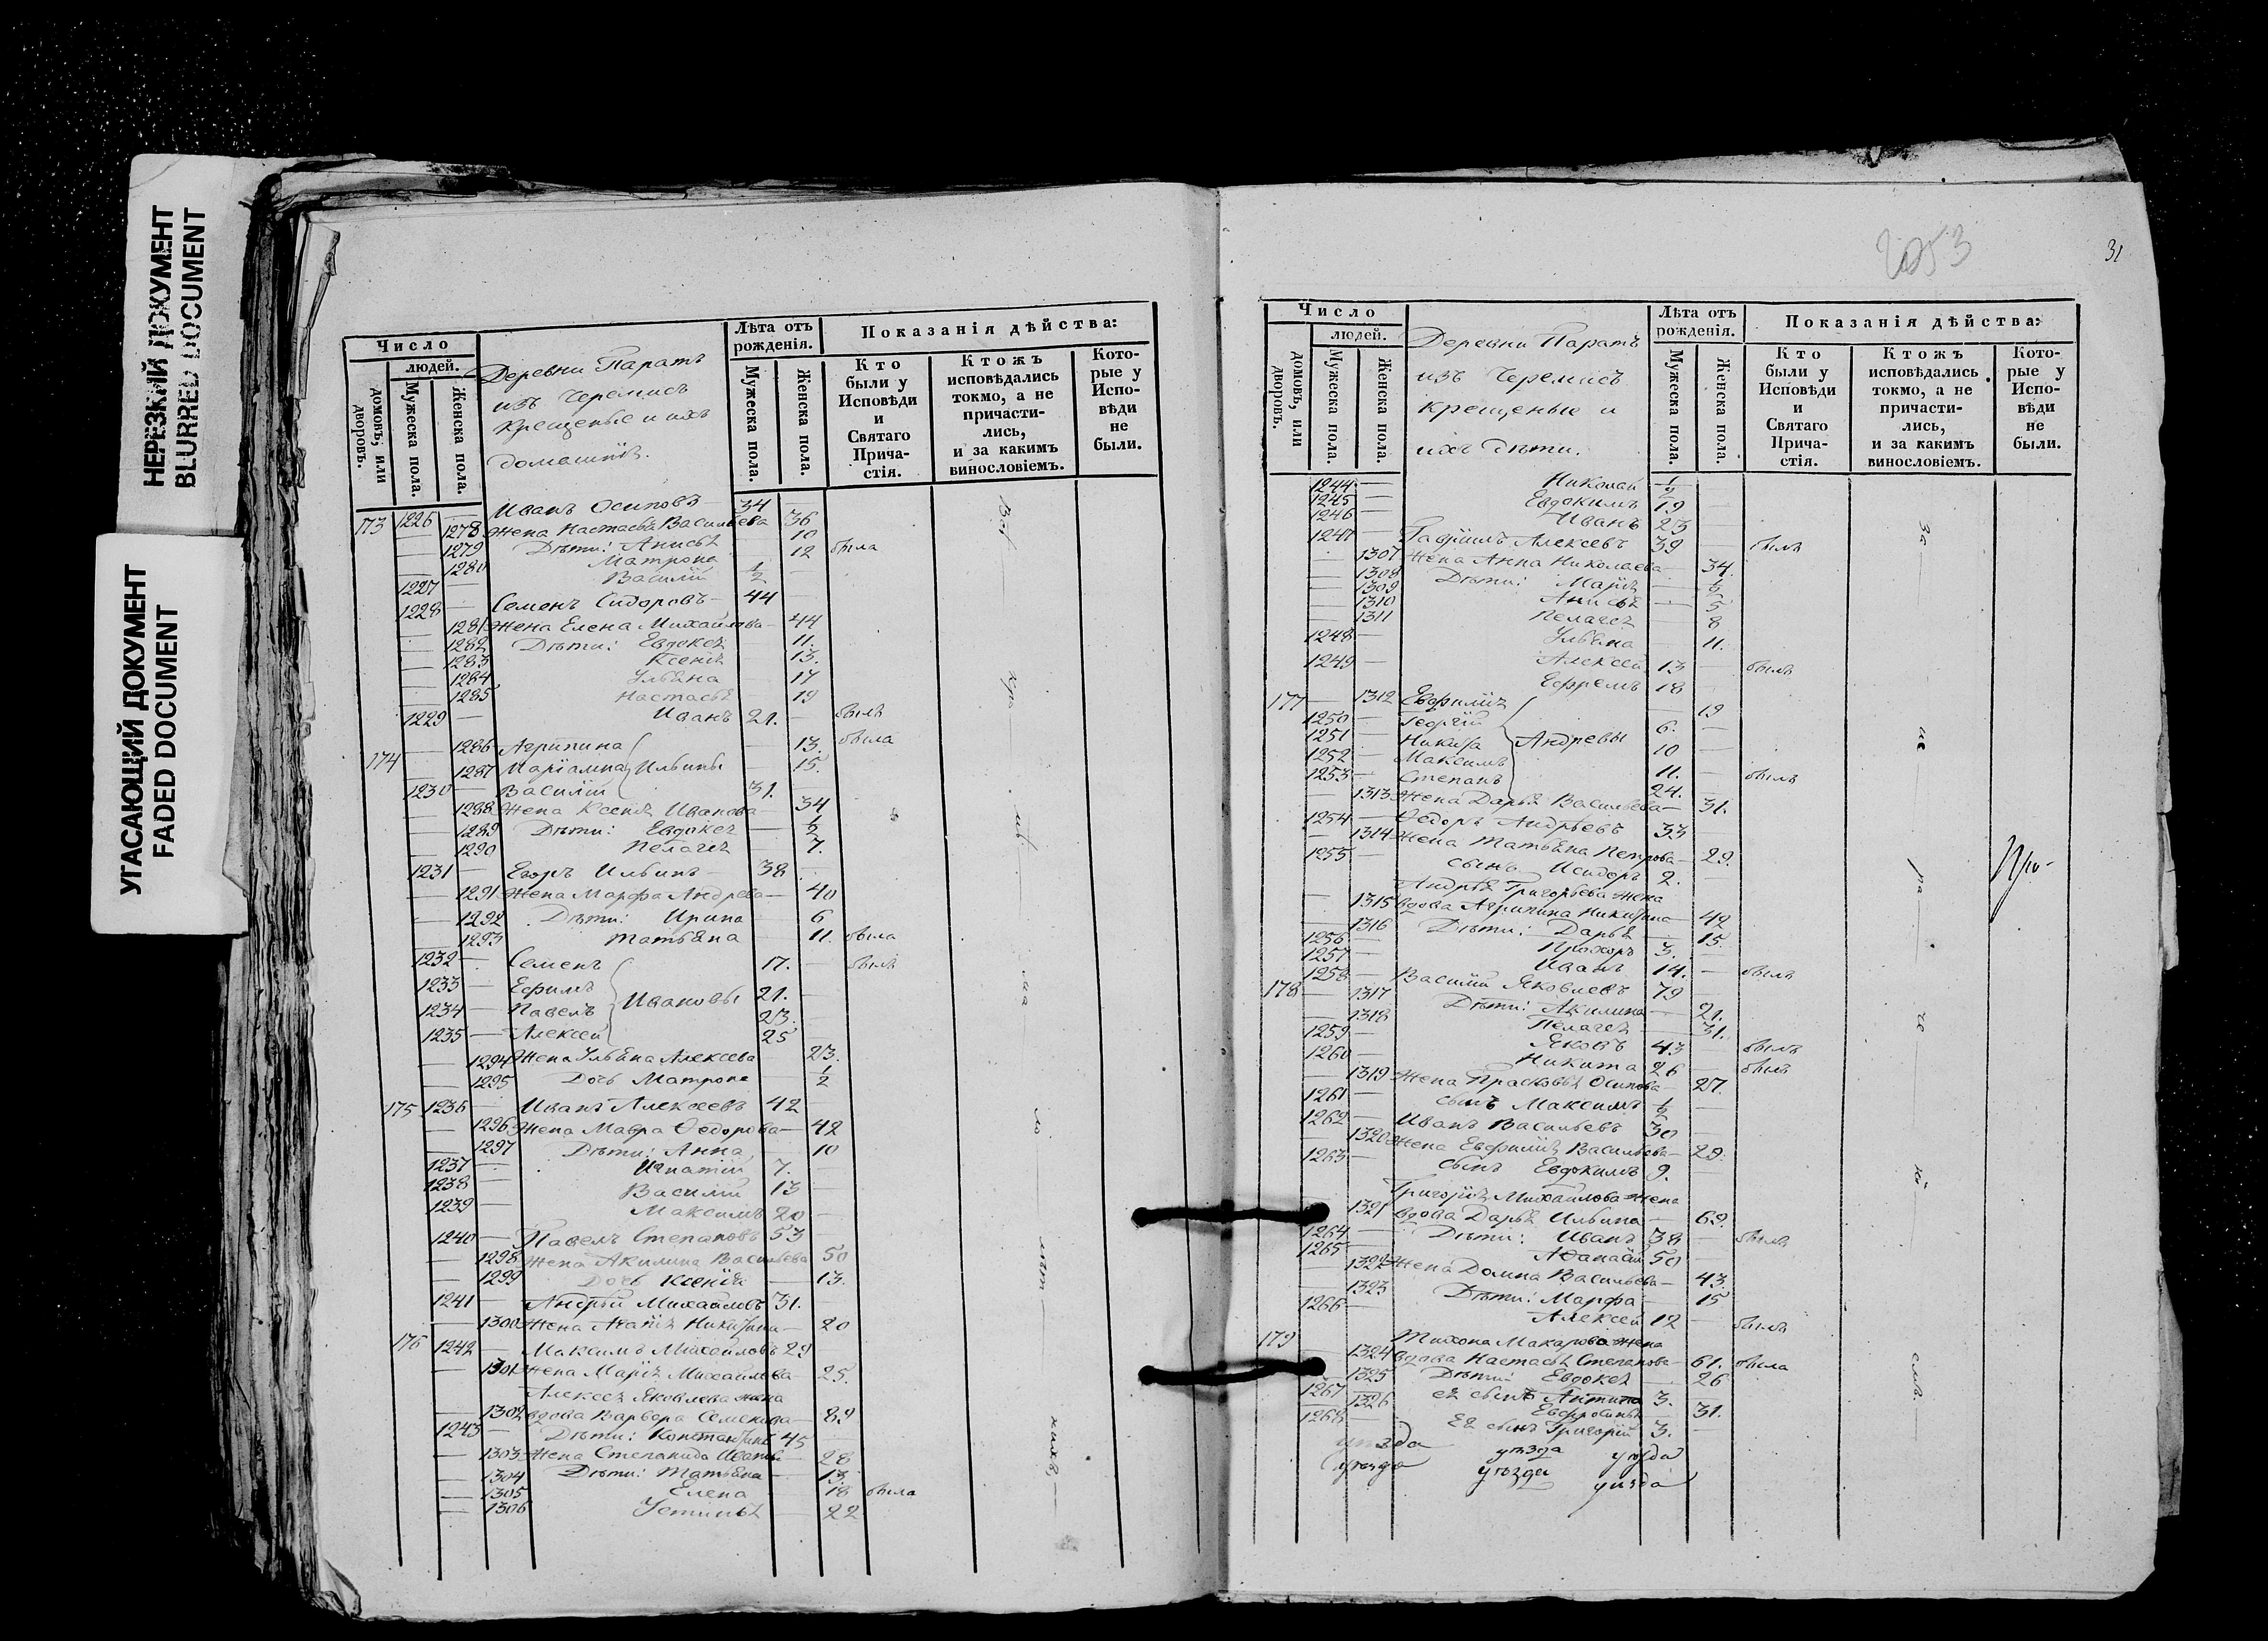 НЕРЕЗКИЙ ДОКУМЕНТ
BLURRED DOCUMENT
УГАСАЮЩИЙ ДОКУМЕНТ
FADED DOCUMENT
Число
людей.
домовъ, или дворовъ.
Мужеска пола.
Женска пола.
Деревни Паратъ
изъ Черемисъ
крещеные и ихъ
домашнія.
Лѣта отъ рожденія.
Мужеска пола.
Женска пола.
Показанія дѣйства:
Кто были у Исповѣди и Святаго Прича-стія.
Ктожъ исповѣдались токмо, а не причасти-лись, и за какимъ винословіемъ.
Кото-рые у Испо-вѣди не были.
173 1226 — Иванъ Осиповъ 34 —
— 1278 Жена Настасья Васильева — 36
— 1279 Дѣти: Анисья — 10
— 1280 Матрона — 12 была
1227 — Василій 1/2 —
1228 — Семенъ Сидоровъ 44 —
— 1281 Жена Елена Михайлова — 44
— 1282 Дѣти: Евдокея 11.
— 1283 Ксенія 13.
— 1284 Ульяна 17
— 1285 Настасья 19
1229 — Иванъ 21. — былъ
174 — 1286 Агрипина — 13. была
— 1287 Маріамна Ильины — 15.
1230 — Василій 31.
1288 Жена Ксенія Иванова 34
— 1289 Дѣти: Евдокея — 1/2
— 1290 Пелагея — 7.
1231 — Егоръ Ильинъ 38
— 1291 Жена Марфа Андреева — 40
— 1292 Дѣти: Ирина 6
— 1293 Татьяна 11. была
1232 — Семенъ 17. — былъ
1233 — Ефимъ Ивановы 21. —
1234 — Павелъ 23.
1235 — Алексей 25
— 1294 Жена Ульяна Алексеева 23.
— 1295 Дочь Матрона — 1/2
175 1236 — Иванъ Алексеевъ 42
— 1296 Жена Мавра Ѳедорова — 42
— 1297 Дѣти: Анна 10
1237 — Игнатій 7.
1238 — Василій 13
1239 — Максимъ 20 —
1240 — Павелъ Степановъ 53
— 1298 Жена Акилина Васильева 50
— 1299 Дочь Ксенія — 13.
1241 — Андрей Михайловъ 31.
— 1300 Жена Агапія Никитина — 20
176 1242 — Максимъ Михайловъ 29
— 1301 Жена Марія Михайлова — 25.
Алексея Яковлева жена
— 1302 вдова Варвара Семенова — 89
1243 — Дѣти: Константинъ 45
— 1303 Жена Степанида Иванова — 28
— 1304 Дѣти: Татьяна — 13.
— 1305 Елена 18 была
— 1306 Устинья 22
31
Число
людей.
домовъ, или дворовъ.
Мужеска пола.
Женска пола.
Деревни Паратъ
изъ Черемисъ
крещеные и
ихъ дѣти.
Лѣта отъ рожденія.
Мужеска пола.
Женска пола.
Показанія дѣйства:
Кто были у Исповѣди и Святаго Прича-стія.
Ктожъ исповѣдались токмо, а не причасти-лись, и за какимъ винословіемъ.
Кото-рые у Испо-вѣди не были.
1244 — Николай 1/2 —
1245 — Евдокимъ 19 —
1246 — Иванъ 23 —
1247 — Алексеевъ 39 — былъ
1307 Жена Анна Николаева — 34
— 1308 Дѣти: Марія 1/2
— 1309 Анисья — 5
— 1310 Пелагея 8
— 1311 Ульяна 11.
1248 — Алексей 13 — былъ
1249 — Ефремъ 18
177 — 1312 Евфимія 19
1250 — Георгій 6. —
1251 — Никита Андреевы 10
1252 — Максимъ 11. — былъ
1253 — Степанъ 24. —
— 1313 Жена Дарья Васильева — 31.
1254 — Ѳедоръ Андреевъ 33
— 1314 Жена Татьяна Петрова — 29.
1255 — сынъ Исидоръ 2.
Андрея Григорьева жена
— 1315 вдова Агрипина Никитина — 42
— 1316 Дѣти: Дарья — 15.
1256 — Прохоръ 3. —
1257 — Иванъ 14. — былъ
178 1258 — Василій Яковлевъ 79
— 1317 Дѣти: Акилина — 21.
— 1318 Пелагея 31.
1259 — Яковъ 43 былъ
1260 — Никита 26 — былъ
— 1319 Жена Прасковья Осипова — 27.
1261 — сынъ Максимъ 1/2 —
1262 — Иванъ Васильевъ 30
1320 Жена Евфимія Васильева — 29.
1263 — сынъ Евдокимъ 9.
Григорія Михайлова жена
— 1321 вдова Дарья Ильина — 69.
1264 — Дѣти: Иванъ 38 — былъ
1265 — Афанасій 50
— 1322 Жена Домна Васильева — 43
— 1323 Дѣти: Марфа — 15
1266 — Алексей 12 былъ
179 Тихона Макарова жена
— 1324 вдова Настасья Степанова — 61. была
— 1325 Дѣти: Евдокея 26
1267 — ея сынъ Антипа 3.
1326 Евфросинья — 31.
1268 — Ея сынъ Григорій 3. —
уѣзда уѣзда уѣзда
уѣзда уѣзда уѣзда